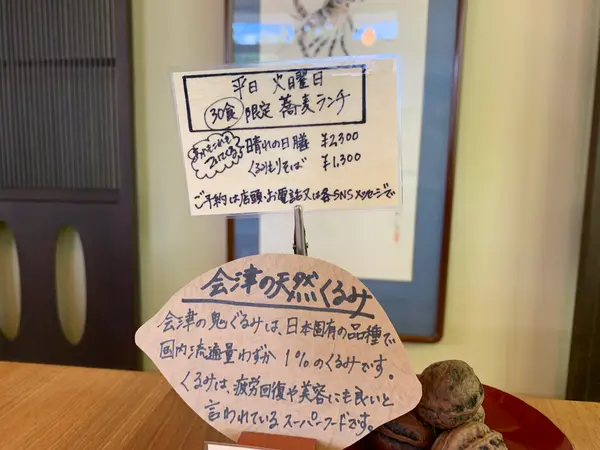 平日 火曜日
30食 限定 蕎麦ランチ
晴れの日膳 ¥2,300
くるみもりそば ¥1,300
ご予約は店頭・お電話又は各SNSメッセージで
会津の天然くるみ
会津の鬼ぐるみは、日本固有の品種で
国内流通量わずか1%のくるみです。
くるみは、疲労回復や美容にも良いと
言われているスーパーフードです。